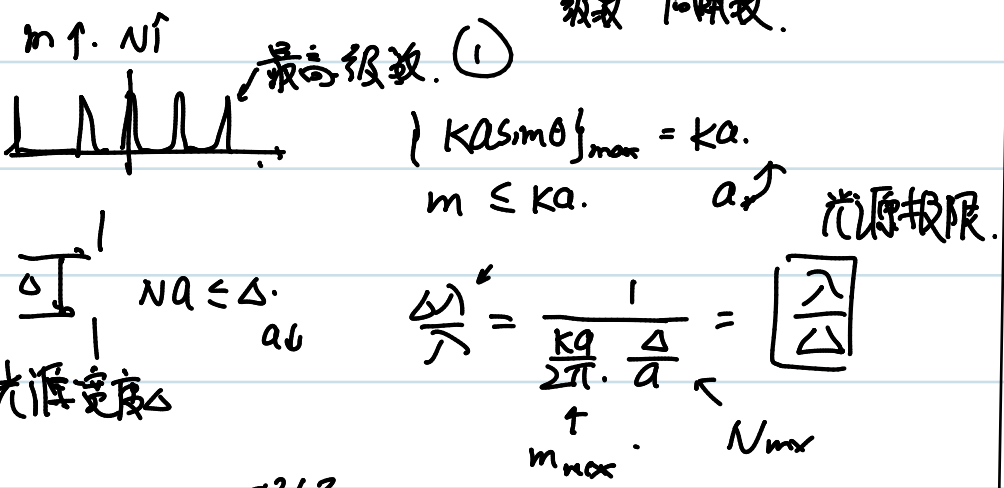 级数
m↑. N↑
最高级数. ①
{ kasinθ}max = ka.
m ≤ ka. a↑
光源极限.
Δ
Na ≤ Δ.
a↓
Δλ/λ = 1/(ka/2π · Δ/a) = λ/Δ
光源宽度Δ
mmax
Nmx